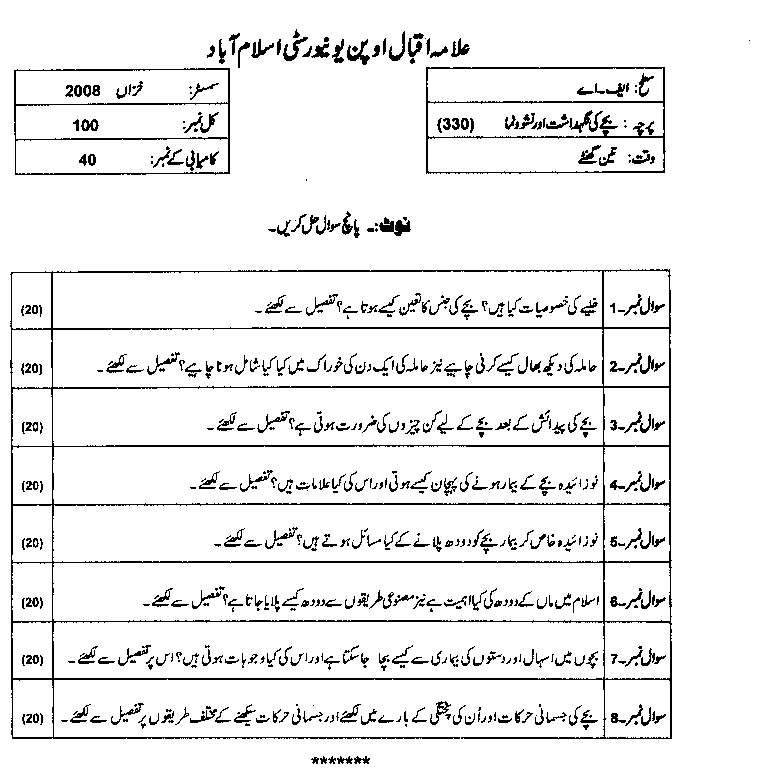 علامہ اقبال اوپن یونیورسٹی اسلام آباد
سطح: ایف۔اے
پرچہ : بچے کی نگہداشت اور نشوونما (330)
وقت: تین گھنٹے
سمسٹر: خزاں 2008
کل نمبر: 100
کامیابی کے نمبر: 40
نوٹ:۔ پانچ سوال حل کریں۔
سوال نمبر۔1 خلیے کی خصوصیات کیا ہیں؟ بچے کی جنس کا تعین کیسے ہوتا ہے؟ تفصیل سے لکھئے۔ (20)
سوال نمبر۔2 حاملہ کی دیکھ بھال کیسے کرنی چاہیے نیز حاملہ کی ایک دن کی خوراک میں کیا کیا شامل ہونا چاہیے؟ تفصیل سے لکھئے۔ (20)
سوال نمبر۔3 بچے کی پیدائش کے بعد بچے کے لیے کن چیزوں کی ضرورت ہوتی ہے؟ تفصیل سے لکھئے۔ (20)
سوال نمبر۔4 نوزائیدہ بچے کے بیمار ہونے کی پہچان کیسے ہوتی اور اس کی کیا علامات ہیں؟ تفصیل سے لکھئے۔ (20)
سوال نمبر۔5 نوزائیدہ خاص کر بیمار بچے کو دودھ پلانے کے کیا مسائل ہوتے ہیں؟ تفصیل سے لکھئے۔ (20)
سوال نمبر۔6 اسلام میں ماں کے دودھ کی کیا اہمیت ہے نیز مصنوعی طریقوں سے دودھ کیسے پلایا جاتا ہے؟ تفصیل سے لکھئے۔ (20)
سوال نمبر۔7 بچوں میں اسہال اور دستوں کی بیماری سے کیسے بچا جا سکتا ہے اور اس کی کیا وجوہات ہوتی ہیں؟ اس پر تفصیل سے لکھئے۔ (20)
سوال نمبر۔8 بچے کی جسمانی حرکات اور اُن کی پختگی کے بارے میں لکھئے اور جسمانی حرکات سیکھنے کے مختلف طریقوں پر تفصیل سے لکھئے۔ (20)
*******